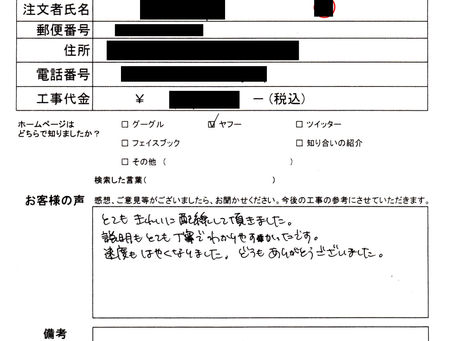 注文者氏名
郵便番号
住所
電話番号
工事代金 ¥ ー(税込)
ホームページは
どちらで知りましたか？
□ グーグル ☑ ヤフー □ ツイッター
□ フェイスブック □ 知り合いの紹介
□ その他 ( )
検索した言葉( )
お客様の声 感想、ご意見等がございましたら、お聞かせください。今後の工事の参考にさせていただきます。
とても きれいに 配線して頂きました。
説明も とても 丁寧で わかりやすかったです。
速度も はやくなりました。どうも ありがとうございました。
備考